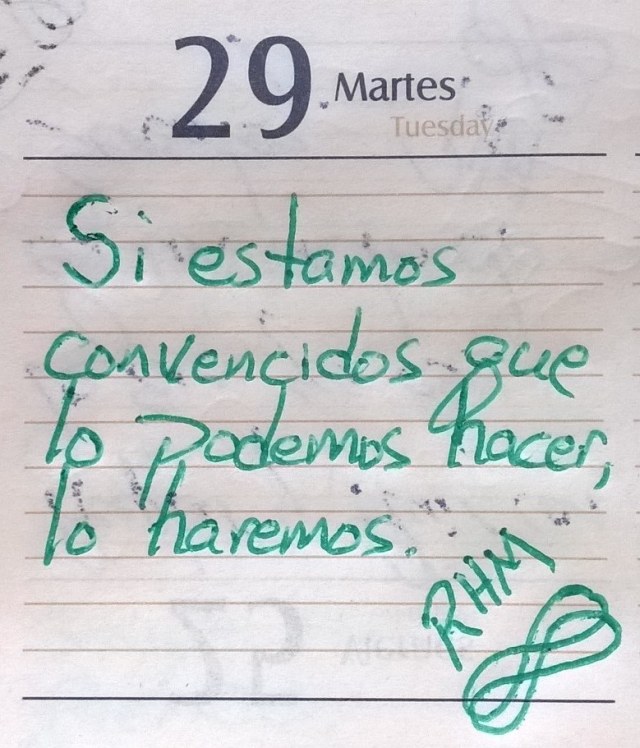 29 Martes
Tuesday
Si estamos
convencidos que
lo podemos hacer,
lo haremos.
RHM